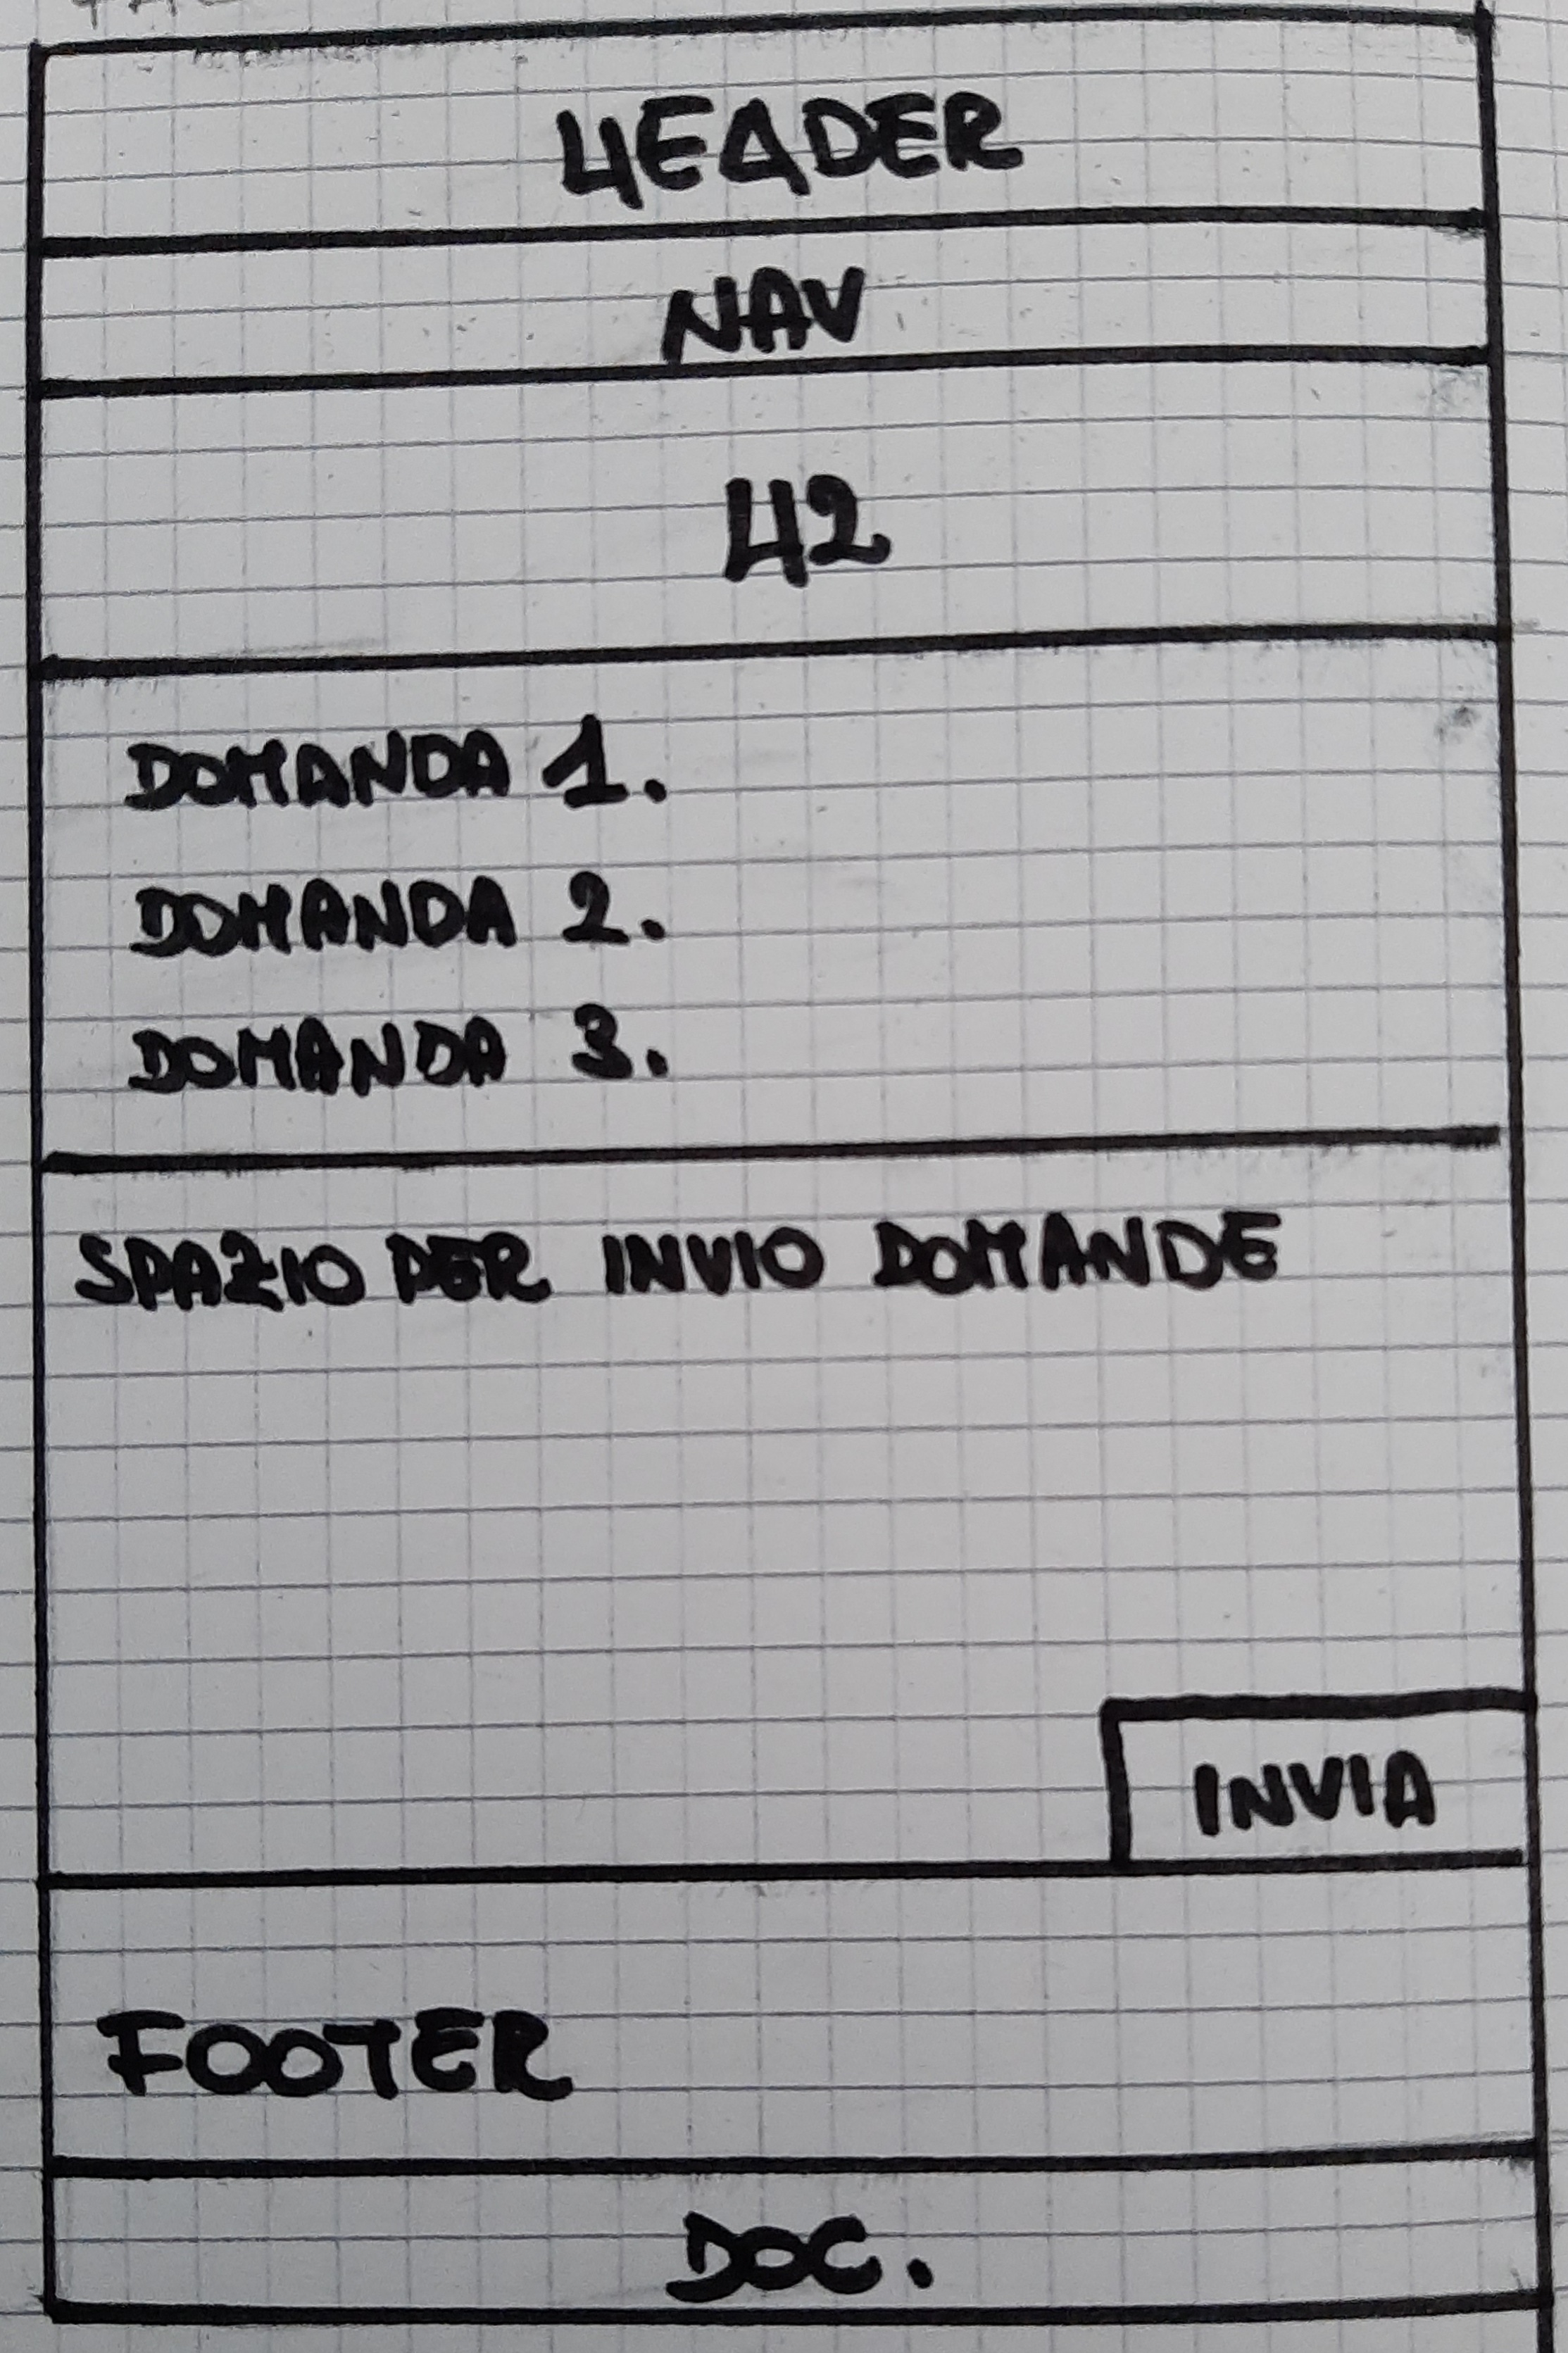 HEADER
NAV
H2
DOMANDA 1.
DOMANDA 2.
DOMANDA 3.
SPAZIO PER INVIO DOMANDE
INVIA
FOOTER
DOC.